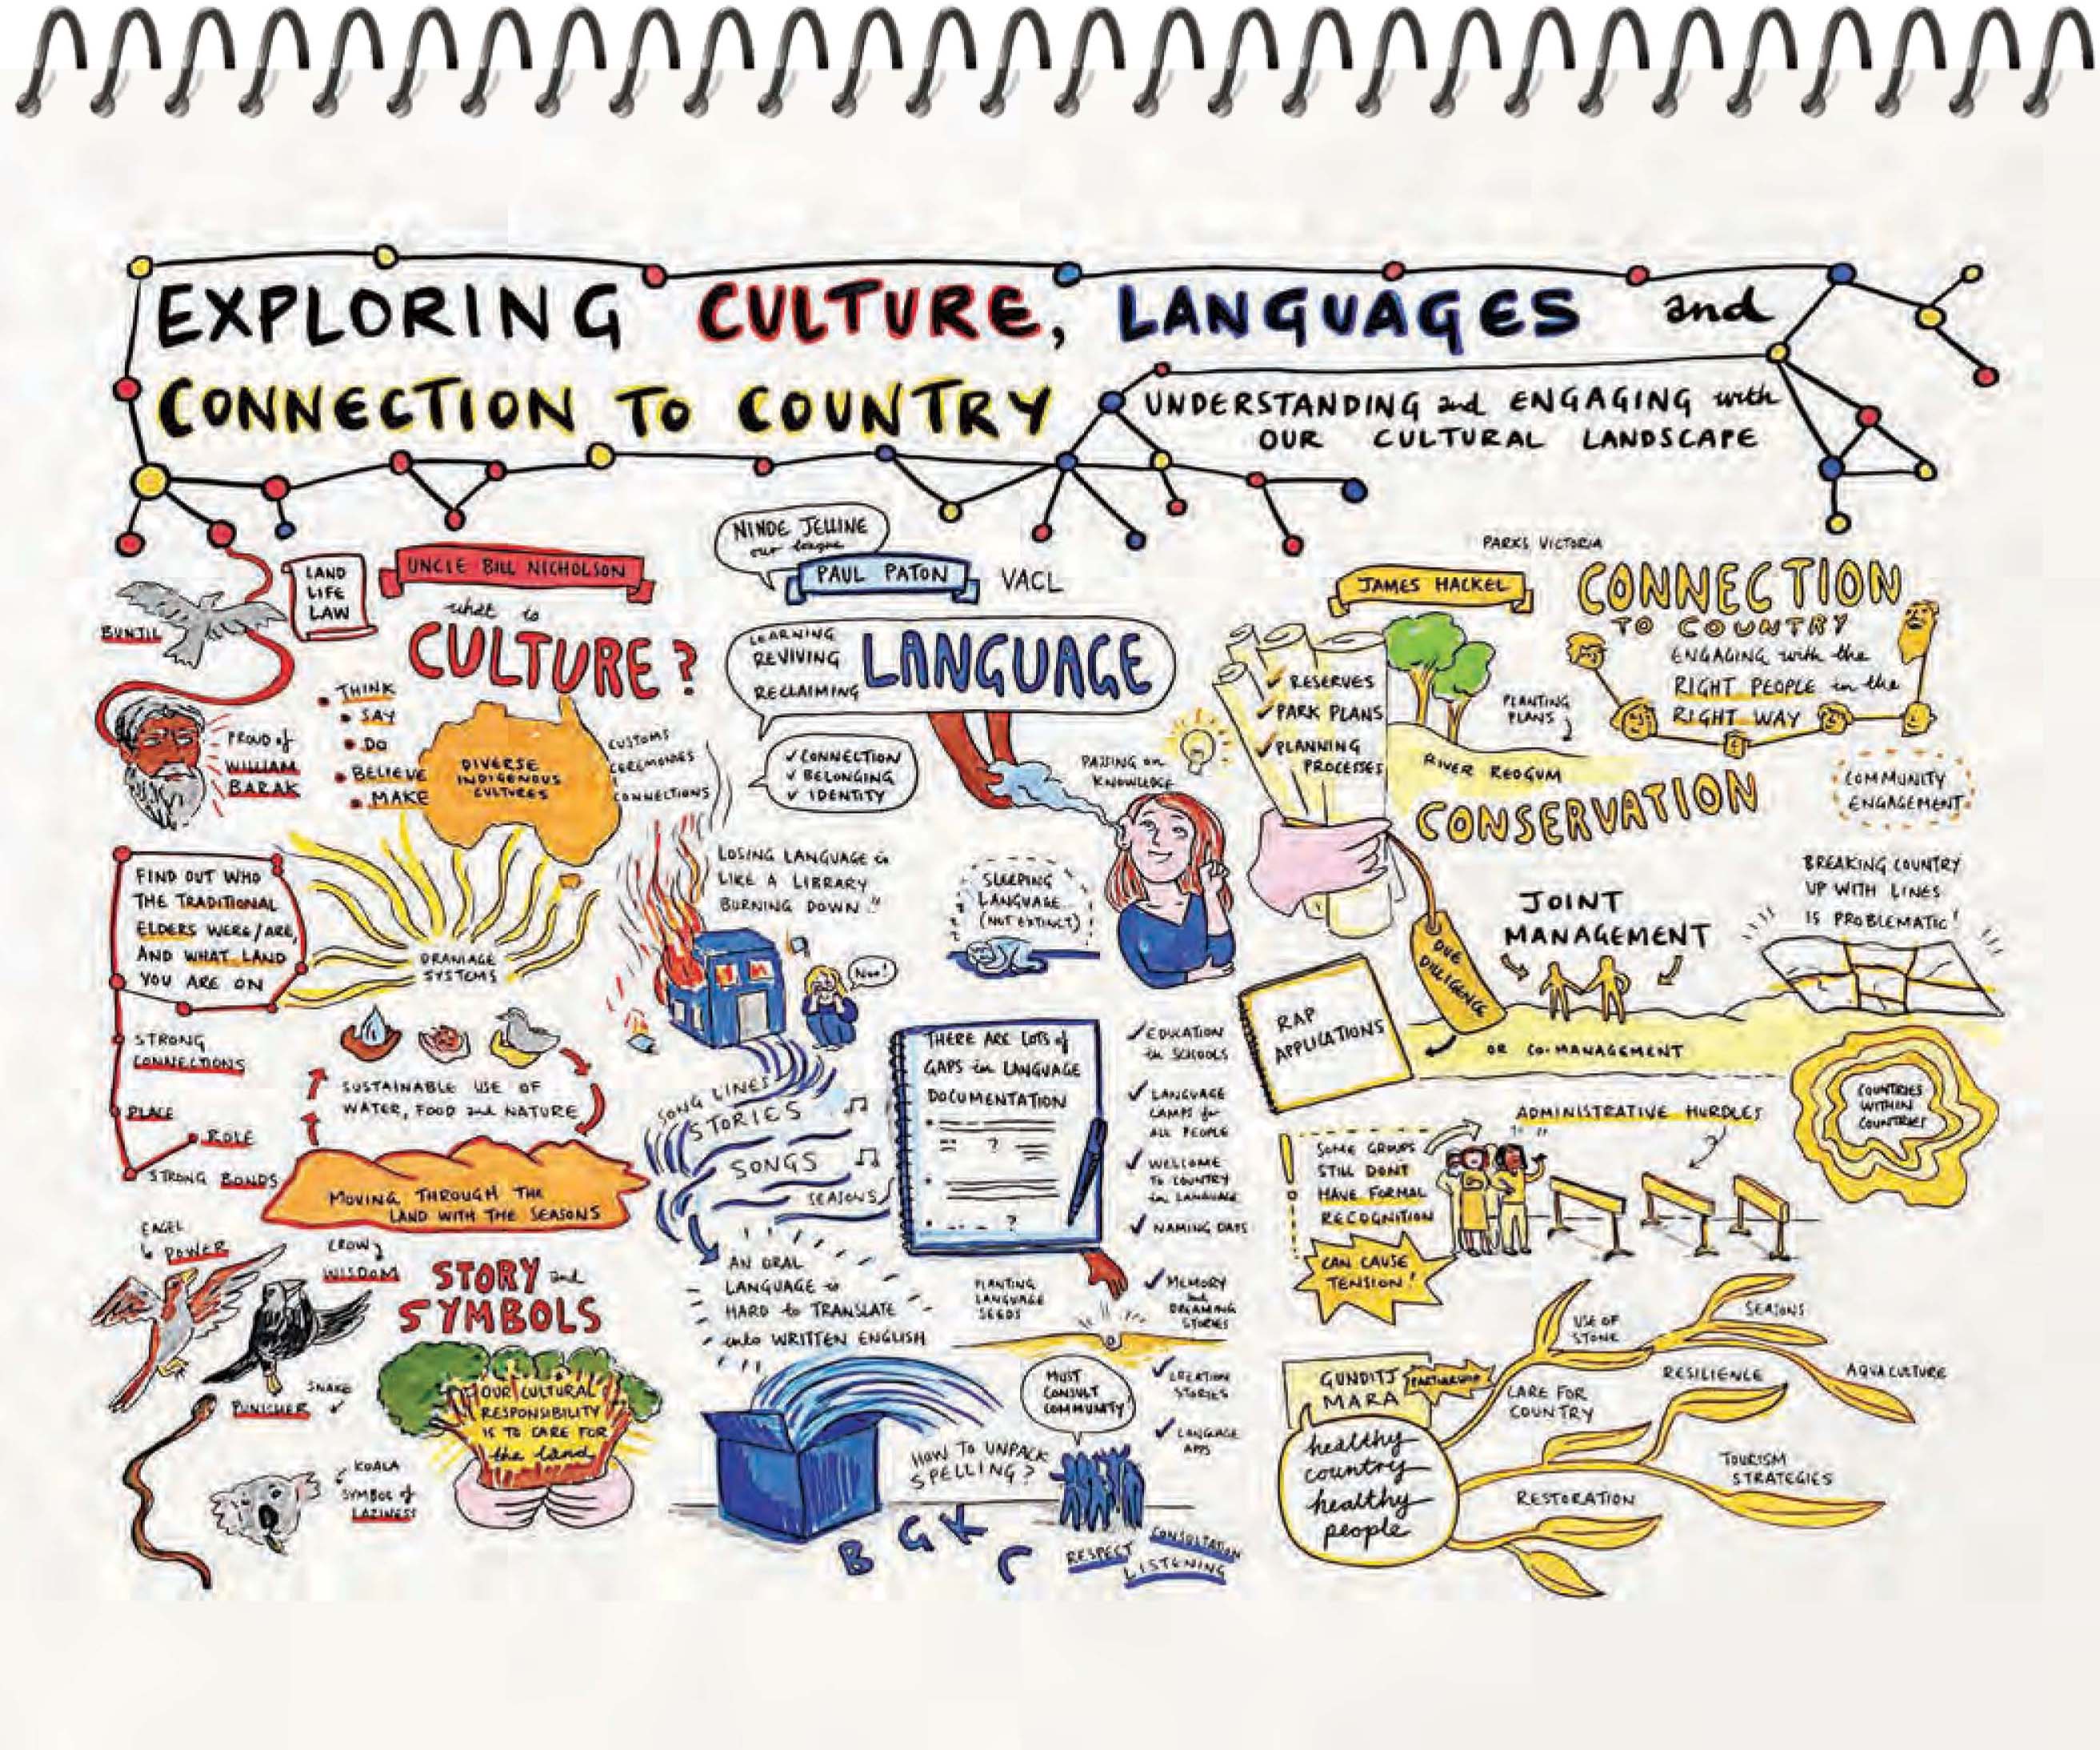 EXPLORING CULTURE, LANGUAGES and
CONNECTION TO COUNTRY
UNDERSTANDING and ENGAGING with
OUR CULTURAL LANDSCAPE
BUNJIL
LAND
LIFE
LAW
UNCLE BILL NICHOLSON
what is
CULTURE?
PROUD of
WILLIAM
BARAK
THINK
SAY
DO
BELIEVE
MAKE
DIVERSE
INDIGENOUS
CULTURES
CUSTOMS
CEREMONIES
CONNECTIONS
FIND OUT WHO
THE TRADITIONAL
ELDERS WERE/ARE,
AND WHAT LAND
YOU ARE ON
DRAINAGE
SYSTEMS
STRONG
CONNECTIONS
PLACE
ROLE
STRONG BONDS
SUSTAINABLE USE OF
WATER, FOOD and NATURE
MOVING THROUGH THE
LAND WITH THE SEASONS
EAGEL
POWER
CROW
WISDOM
STORY and
SYMBOLS
SNAKE
PUNISHER
KOALA
SYMBOL of
LAZINESS
OUR CULTURAL
RESPONSIBILITY
IS TO CARE FOR
the land
NINDE JELLINE
our tongue
PAUL PATON VACL
LEARNING
REVIVING
RECLAIMING
LANGUAGE
✓ CONNECTION
✓ BELONGING
✓ IDENTITY
PASSING on
KNOWLEDGE
LOSING LANGUAGE is
LIKE A LIBRARY
BURNING DOWN"
Noo!
SLEEPING
LANGUAGE
(NOT EXTINCT)
SONG LINES
STORIES
SONGS
SEASONS
THERE ARE LOTS of
GAPS in LANGUAGE
DOCUMENTATION
?
?
✓ EDUCATION
in SCHOOLS
✓ LANGUAGE
CAMPS for
ALL PEOPLE
✓ WELCOME
TO COUNTRY
in LANGUAGE
✓ NAMING DAYS
✓ MEMORY
and
DREAMING
STORIES
✓ CREATION
STORIES
✓ LANGUAGE
APPS
AN ORAL
LANGUAGE is
HARD to TRANSLATE
into WRITTEN ENGLISH
PLANTING
LANGUAGE
SEEDS
MUST
CONSULT
COMMUNITY
HOW TO UNPACK
SPELLING?
B G K
RESPECT
CONSULTATION
LISTENING
PARKS VICTORIA
JAMES HACKEL
CONNECTION
TO COUNTRY
ENGAGING with the
RIGHT PEOPLE in the
RIGHT WAY
✓ RESERVES
✓ PARK PLANS
✓ PLANNING
PROCESSES
PLANTING
PLANS
RIVER REDGUM
CONSERVATION
COMMUNITY
ENGAGEMENT
DUE
DILLIGENCE
JOINT
MANAGEMENT
BREAKING COUNTRY
UP WITH LINES
IS PROBLEMATIC!
RAP
APPLICATIONS
OR CO-MANAGEMENT
COUNTRIES
WITHIN
COUNTRIES
ADMINISTRATIVE HURDLES
SOME GROUPS
STILL DONT
HAVE FORMAL
RECOGNITION
CAN CAUSE
TENSION!
GUNDITJ
MARA
PARTNERSHIP
healthy
country
healthy
people
USE OF
STONE
SEASONS
CARE FOR
COUNTRY
RESILIENCE
AQUACULTURE
RESTORATION
TOURISM
STRATEGIES